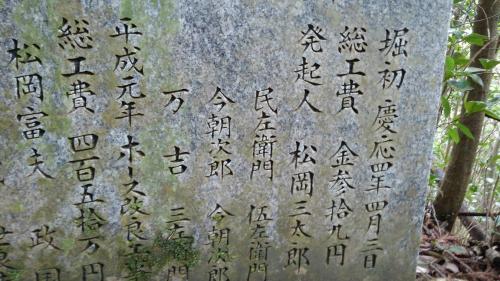 堀初 慶応四年四月三日
総工費 金参拾九円
発起人 松岡三太郎
民左衛門 伍左衛門
今朝次郎 今朝次郎
万吉 三左衛門
平成元年 ホース改良工事
総工費 四百五拾万円
松岡富夫 政国